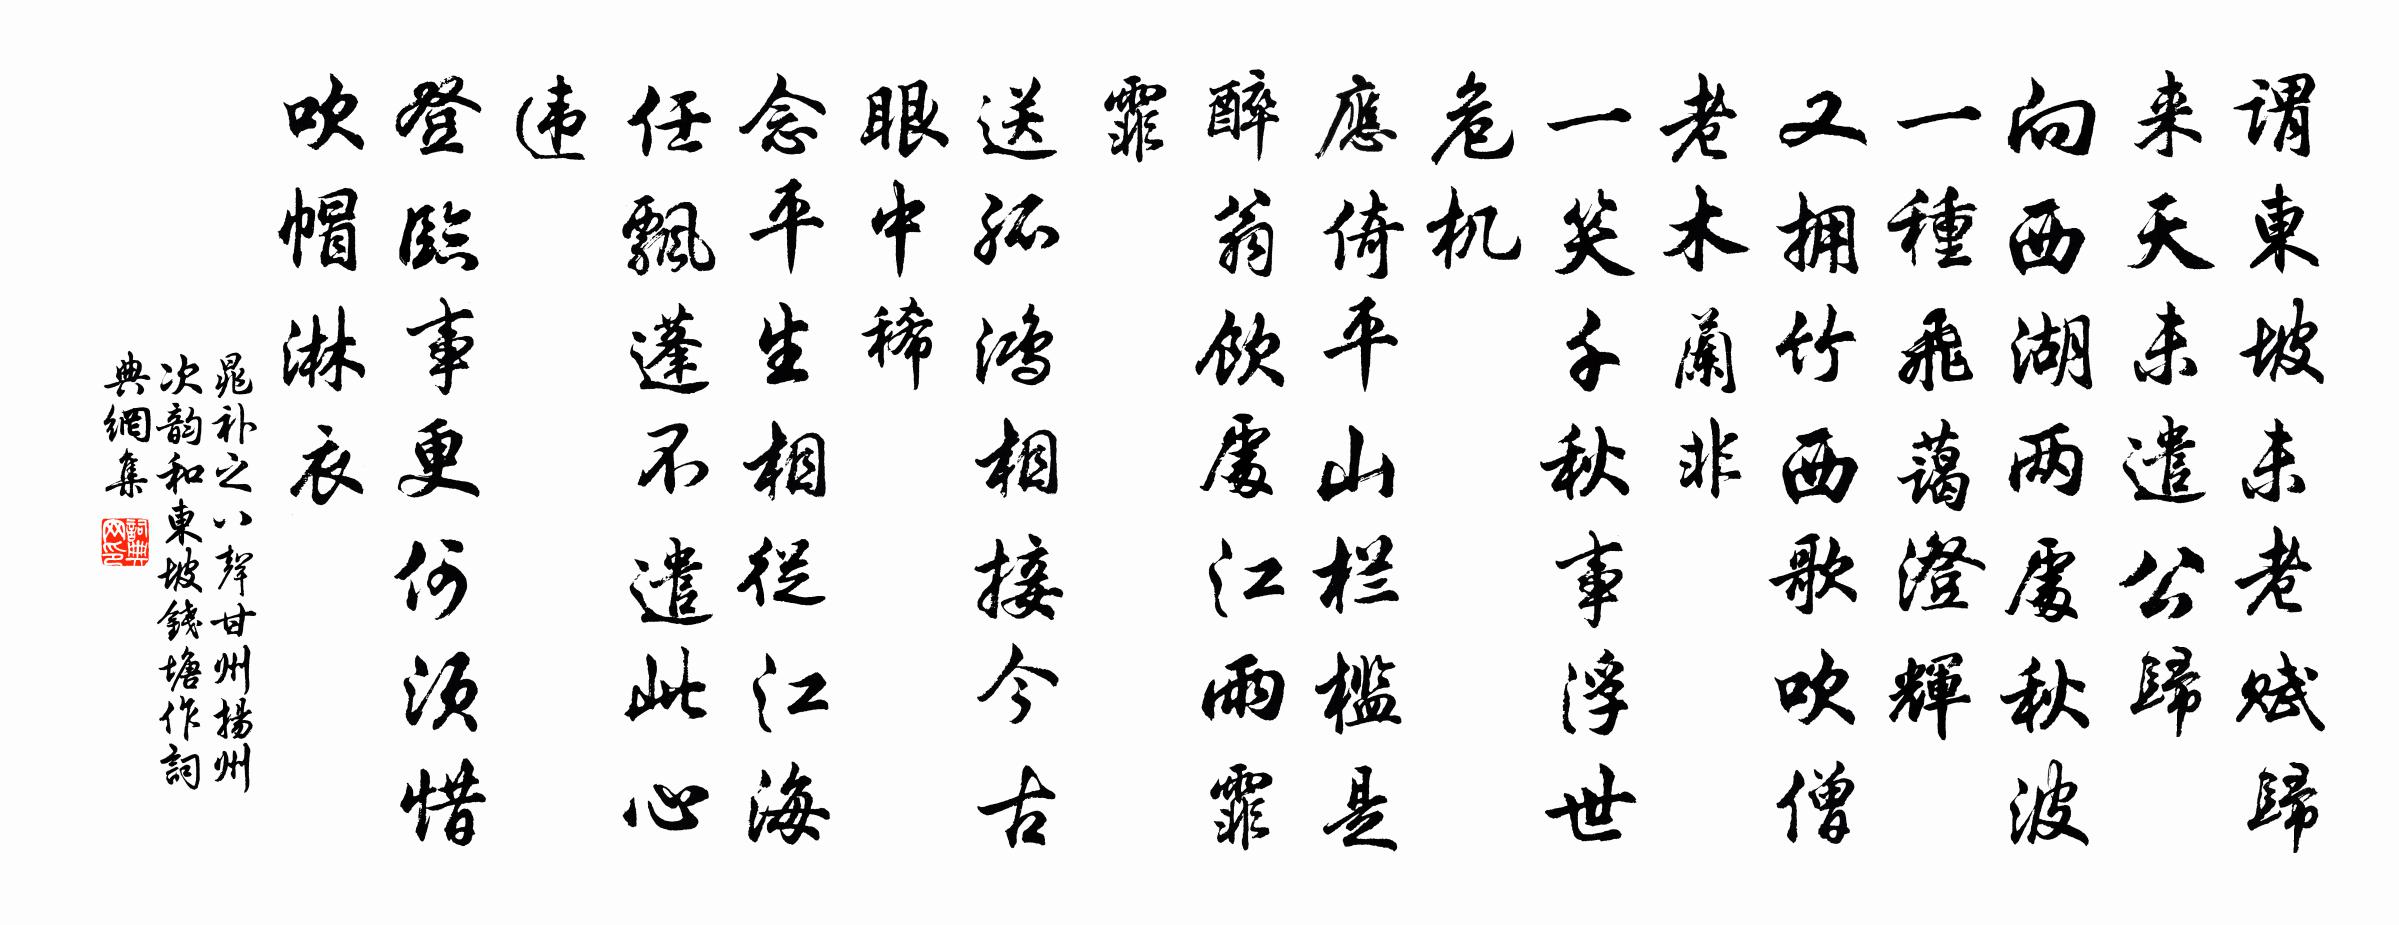 謂東坡未老賦歸
来天未遣公歸
向西湖两處秋波
一種飛藹澄輝
又拥竹西歌吹僧
老木蘭非
一笑千秋事浮世
危机
應倚平山栏槛是
醉翁飲處江雨霏
霏
送孤鸿相接今古
眼中稀
念平生相從江海
任飄蓬不遣此心
违
登臨事更何须惜
吹帽淋衣
晁补之八聲甘州揚州
次韵和東坡錢塘作詞
典網集
詞典网印